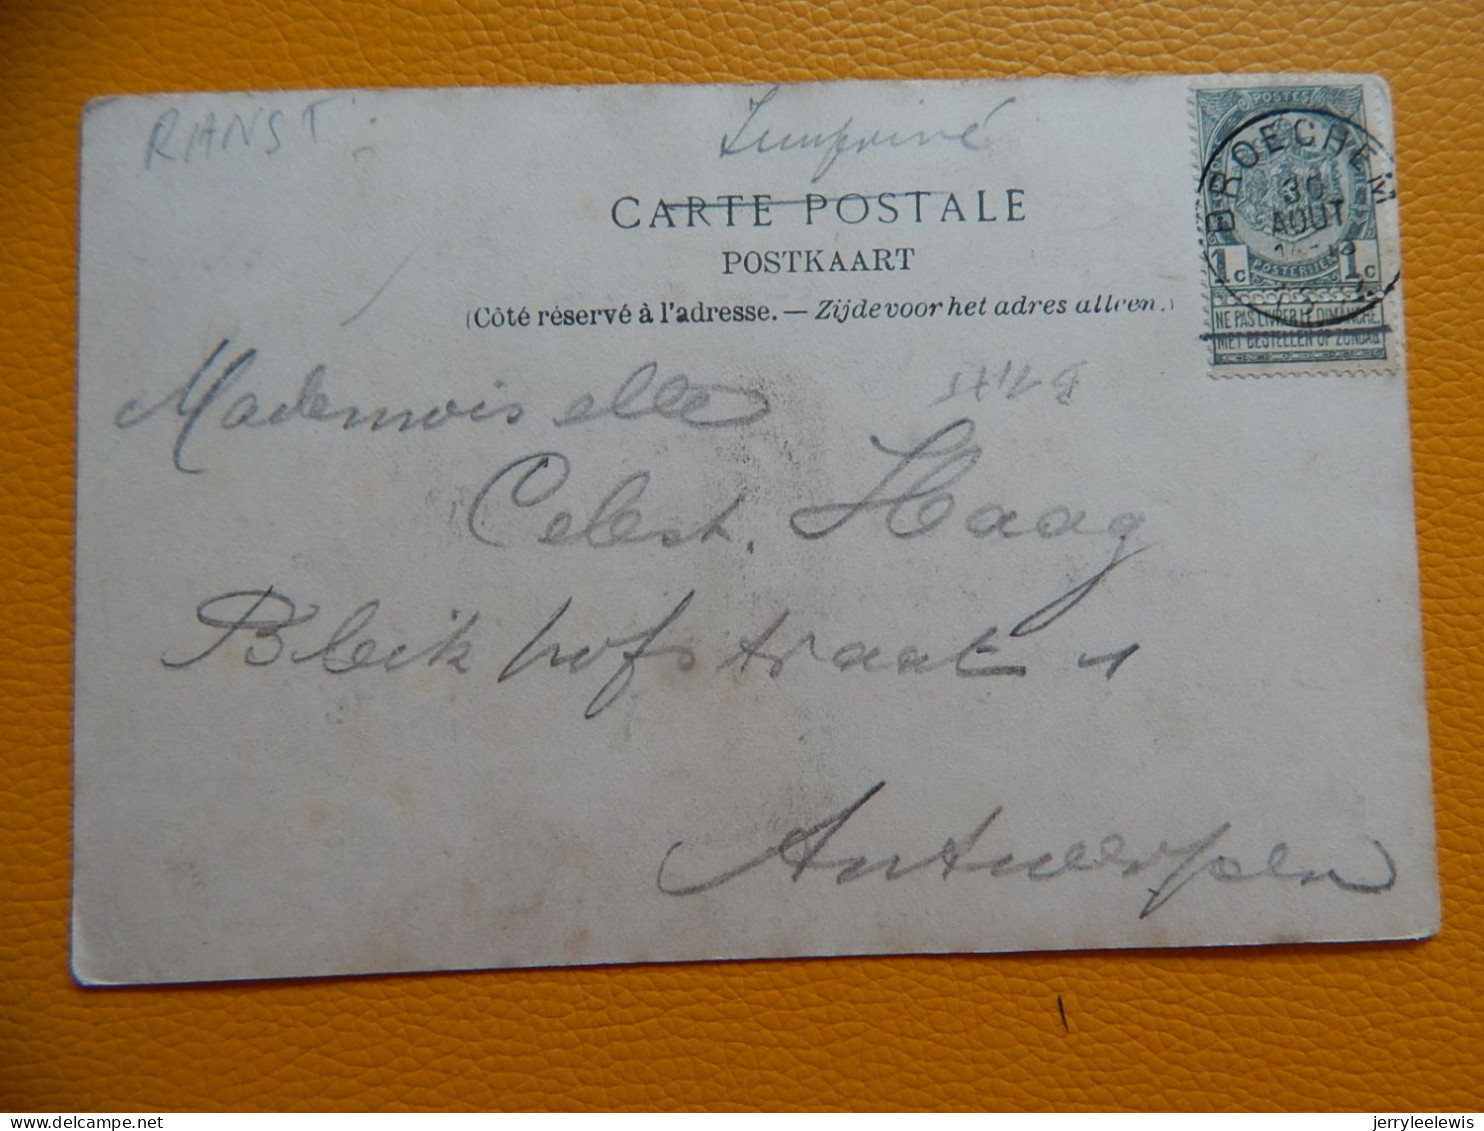 RANST
Imprimé
CARTE POSTALE
POSTKAART
(Côté réservé à l'adresse. — Zijde voor het adres alleen.)
POSTES
BROECHEM
30
AOUT
1c POSTERIJEN 1c
NE PAS LIVRER LE DIMANCHE
NIET BESTELLEN OP ZONDAG
Mademoiselle
Celest. Haag
Bleikhofstraat 1
Antwerpen
jerryleelewis